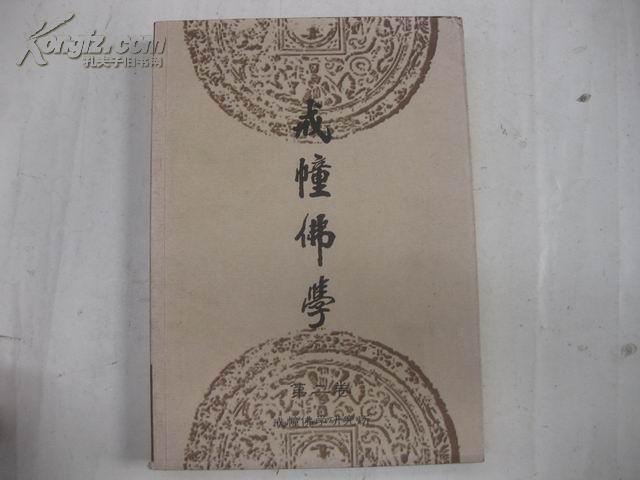 Kongfz.com
孔夫子旧书网
戒幢佛學
第二卷
戒幢佛学研究所